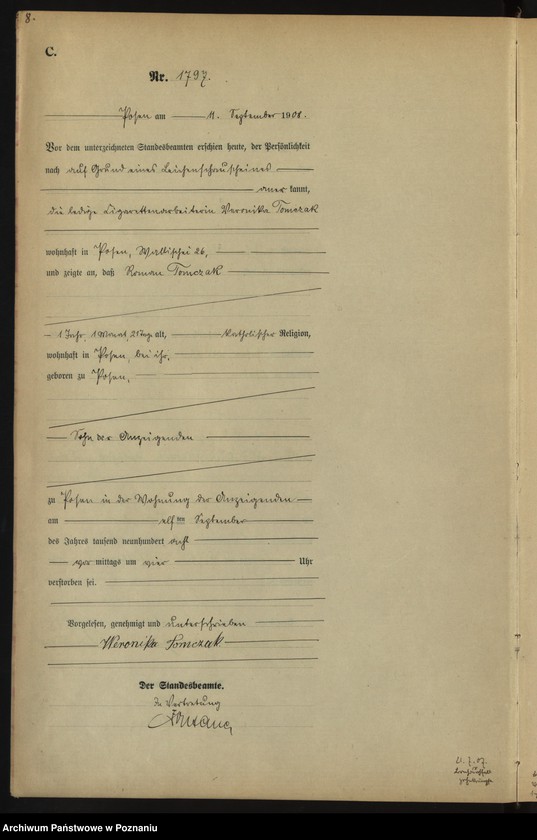 8.
C.
Nr. 1797.
Posen am 11. September 1908.
Vor dem unterzeichneten Standesbeamten erschien heute, der Persönlichkeit
nach auf Grund eines Leichenschauscheines
aner kannt,
die ledige Zigarettenarbeiterin Veronika Tomczak
wohnhaft in Posen, Wallischei 26,
und zeigte an, daß Roman Tomczak
1 Jahr, 1 Monat, 21 Tage alt, katholischer Religion,
wohnhaft in Posen, bei ihr,
geboren zu Posen,
Sohn der Anzeigenden
zu Posen in der Wohnung der Anzeigenden
am elf ten September
des Jahres tausend neunhundert acht
vor mittags um vier Uhr
verstorben sei.
Vorgelesen, genehmigt und unterschrieben
Weronika Tomczak
Der Standesbeamte.
In Vertretung
Fontane
Archiwum Państwowe w Poznaniu